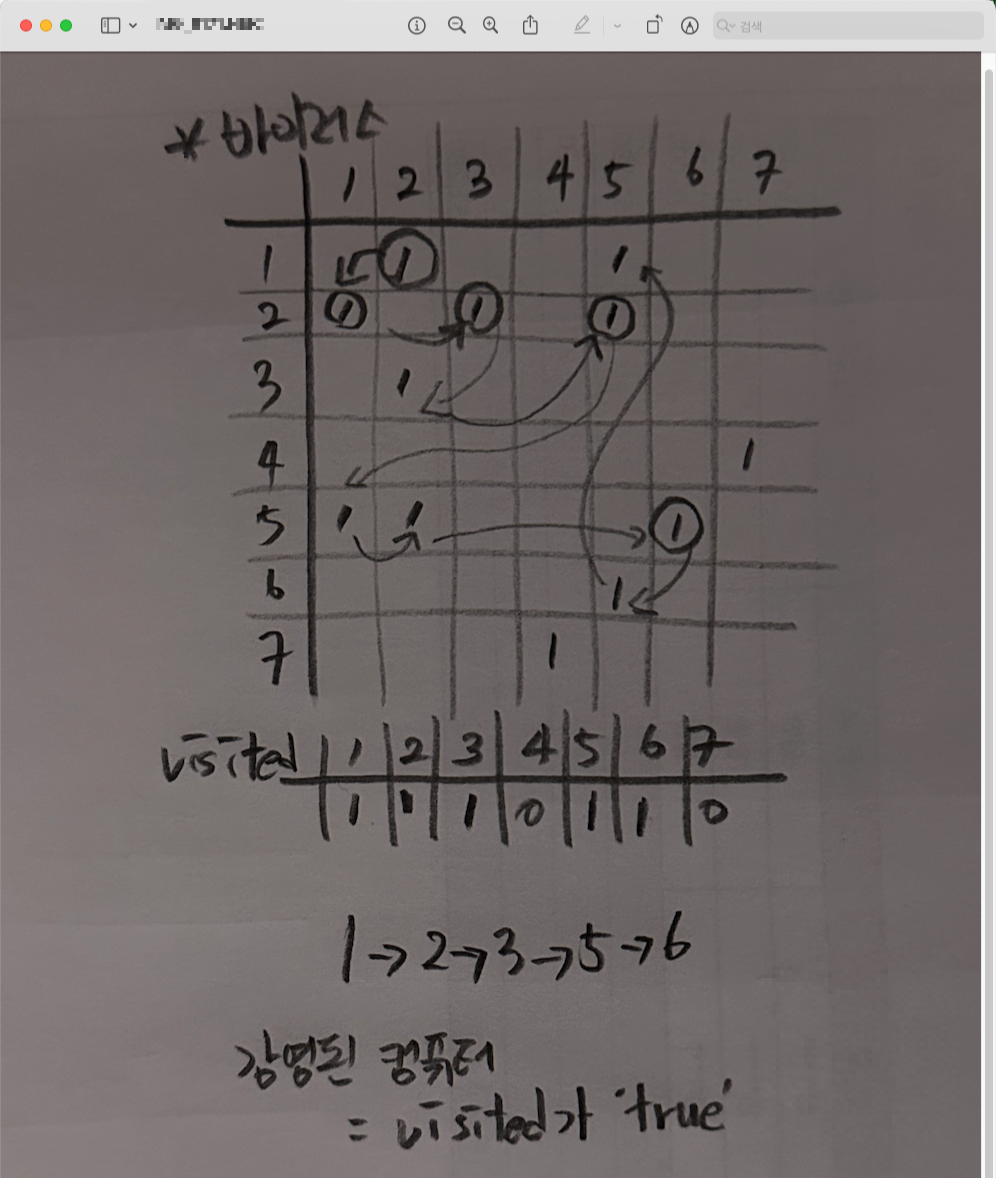 검색
* 바이러스
1 2 3 4 5 6 7
1 1 1
2 1 1 1
3 1
4 1
5 1 1 1
6 1
7 1
visited 1 2 3 4 5 6 7
1 1 1 0 1 1 0
1→2→3→5→6
감영된 컴퓨터
= visited가 'true'